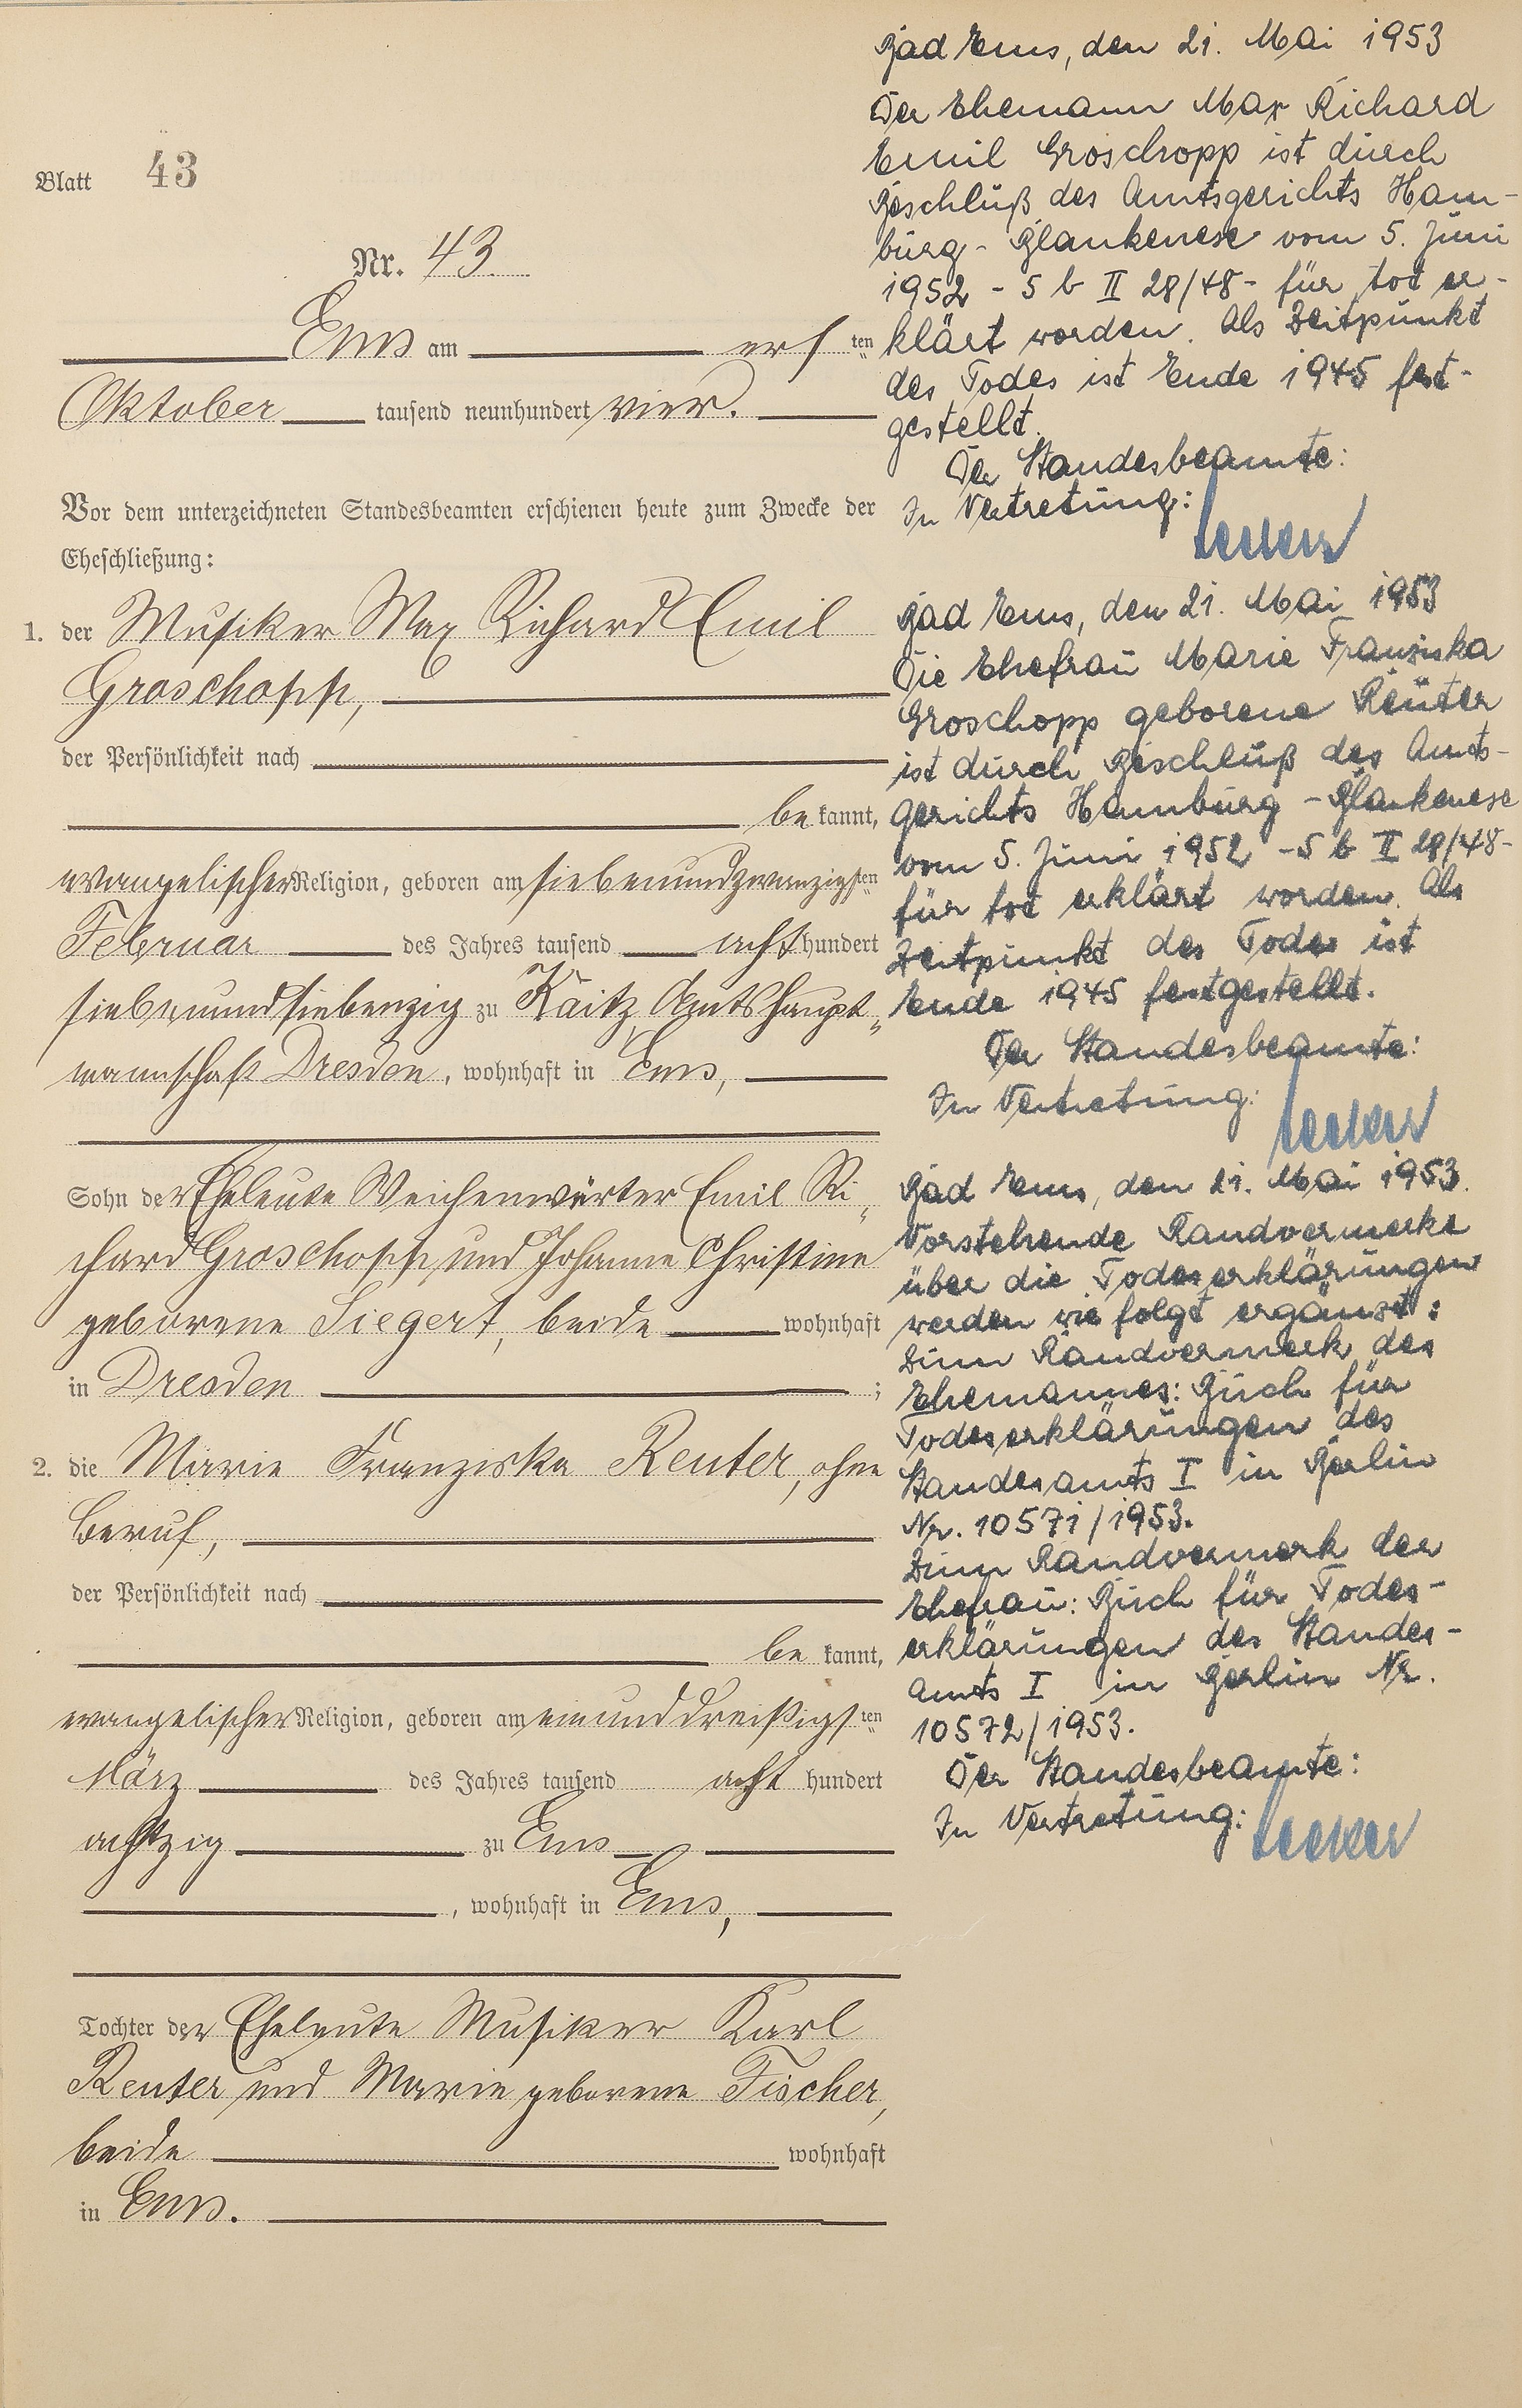 Blatt 43
Nr. 43.
Ems am ersten
Oktober tausend neunhundert vier.
Vor dem unterzeichneten Standesbeamten erschienen heute zum Zwecke der
Eheschließung:
1. der Musiker Max Richard Emil
Groschopp,
der Persönlichkeit nach
be kannt,
evangelischer Religion, geboren am siebenundzwanzigsten
Februar des Jahres tausend acht hundert
siebenundsiebenzig zu Kaitz, Amtshaupt„
mannschaft Dresden, wohnhaft in Ems,
Sohn der Eheleute Weichenwärter Emil Ri„
chard Groschopp und Johanne Christine
geborene Siegert, beide wohnhaft
in Dresden ;
2. die Marie Franziska Reuter, ohne
Beruf,
der Persönlichkeit nach
be kannt,
evangelischer Religion, geboren am einunddreißigsten
März des Jahres tausend acht hundert
achtzig zu Ems
, wohnhaft in Ems,
Tochter der Eheleute Musiker Karl
Reuter und Marie geborene Fischer,
beide wohnhaft
in Ems.
Bad Ems, den 21. Mai 1953
Der Ehemann Max Richard
Emil Groschopp ist durch
Beschluß des Amtsgerichts Ham-
burg - Blankenese vom 5. Juni
1952 - 5 b II 28/48 - für tot er-
klärt worden. Als Zeitpunkt
des Todes ist Ende 1945 fest-
gestellt.
Der Standesbeamte:
In Vertretung:
Bad Ems, den 21. Mai 1953
Die Ehefrau Marie Franziska
Groschopp geborene Reuter
ist durch Beschluß des Amts-
gerichts Hamburg - Blankenese
vom 5. Juni 1952 - 5 b II 28/48 -
für tot erklärt worden. Als
Zeitpunkt des Todes ist
Ende 1945 festgestellt.
Der Standesbeamte:
In Vertretung:
Bad Ems, den 21. Mai 1953.
Vorstehende Randvermerke
über die Todeserklärungen
werden wie folgt ergänzt:
Zum Randvermerk des
Ehemannes: Buch für
Todeserklärungen des
Standesamts I in Berlin
Nr. 10571/1953.
Zum Randvermerk der
Ehefrau: Buch für Todes-
erklärungen des Standes-
amts I in Berlin Nr.
10572/1953.
Der Standesbeamte:
In Vertretung: